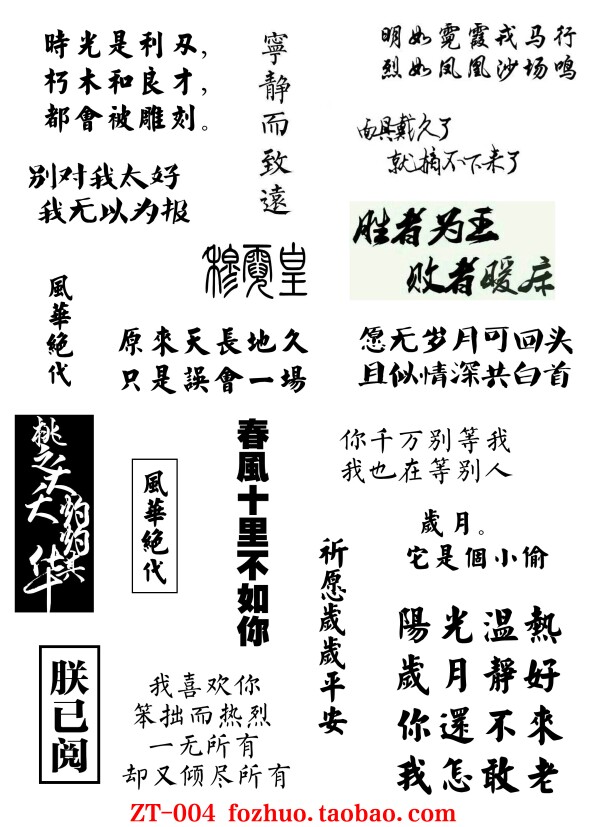 時光是利刃，
朽木和良才，
都會被雕刻。
寧静而致遠
明如霓霞戎马行
烈如凤凰沙场鸣
别对我太好
我无以为报
面具戴久了
就摘不下来了
胜者为王
败者暖床
穆霓皇
風華絕代
原來天長地久
只是誤會一場
愿无岁月可回头
且似情深共白首
桃之夭夭
灼灼其
华
風華絕代
春風十里不如你
你千万别等我
我也在等别人
歲月。
它是個小偷
祈愿歲歲平安
陽光温熱
歲月靜好
你還不來
我怎敢老
朕已阅
我喜欢你
笨拙而热烈
一无所有
却又倾尽所有
ZT-004 fozhuo.taobao.com